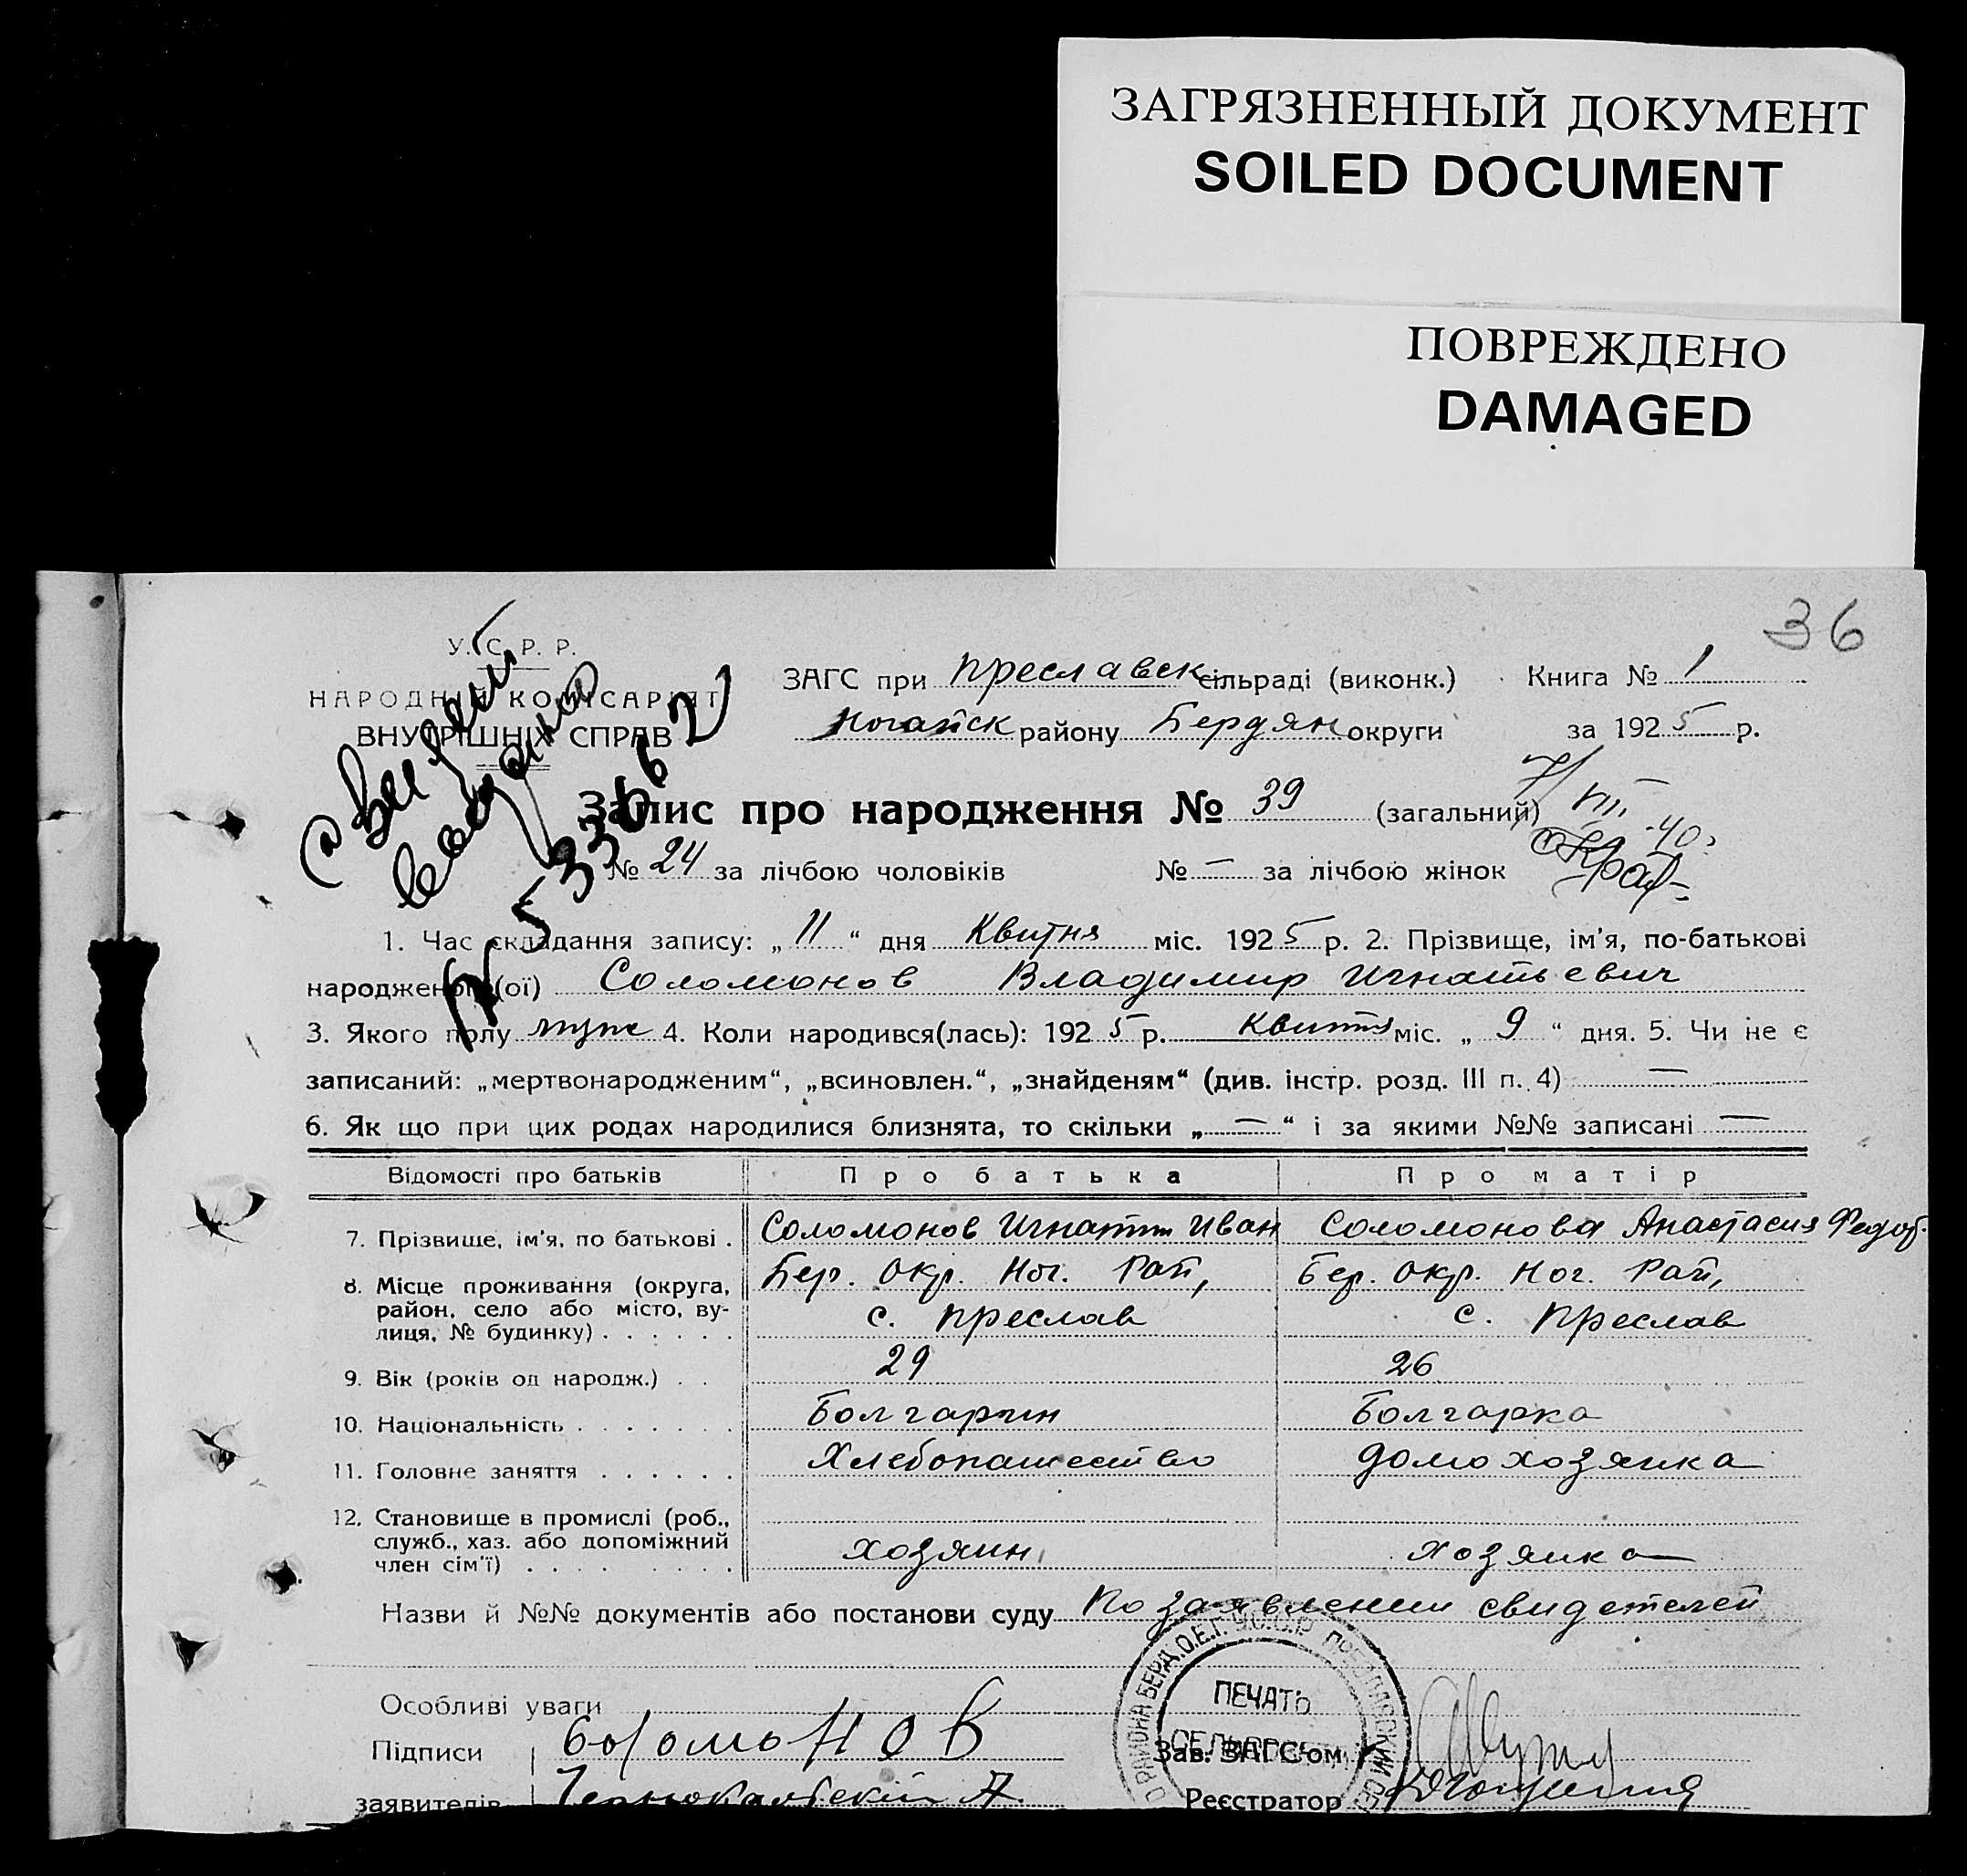 ЗАГРЯЗНЕННЫЙ ДОКУМЕНТ
SOILED DOCUMENT
ПОВРЕЖДЕНО
DAMAGED
36
У. С. Р. Р.
НАРОДНІЙ КОМІСАРІЯТ
ВНУТРІШНІХ СПРАВ
ЗАГС при Преславск сільраді (виконк.) Книга № 1
Ногайск району Бердян округи за 1925 р.
Запис про народження № 39 (загальний)
7/VIII-40
№ 24 за лічбою чоловіків № — за лічбою жінок
1. Час складання запису: „11“ дня Квитня міс. 1925 р. 2. Прізвище, ім'я, по-батькові
народженого(ої) Соломонов Владимир Игнатьевич
3. Якого полу муж 4. Коли народився(лась): 1925 р. Квитня міс. „9“ дня. 5. Чи не є
записаний: „мертвонародженим“, „всиновлен.“, „знайденям“ (див. інстр. розд. III п. 4) —
6. Як що при цих родах народилися близнята, то скільки „—“ і за якими №№ записані —
Відомості про батьків Про батька Про матір
7. Прізвище, ім'я, по батькові . Соломонов Игнатий Иван Соломонова Анастасия Федор.
8. Місце проживання (округа, Бер. Окр. Ног. Рай, Бер. Окр. Ног. Рай,
район, село або місто, ву-
лиця, № будинку) . . . . . . с. Преслав с. Преслав
9. Вік (років од народж.) . . 29 26
10. Національність . . . . . . . Болгарин Болгарка
11. Головне заняття . . . . . . Хлебопашество домохозяйка
12. Становище в промислі (роб.,
служб., хаз. або допоміжний
член сім'ї) . . . . . . . . хозяин хозяйка
Назви й №№ документів або постанови суду По заявлении свидетелей
Особливі уваги
ПЕЧАТЬ
Підписи Соломонов Зав. ЗАГС'ом
заявителів Реєстратор